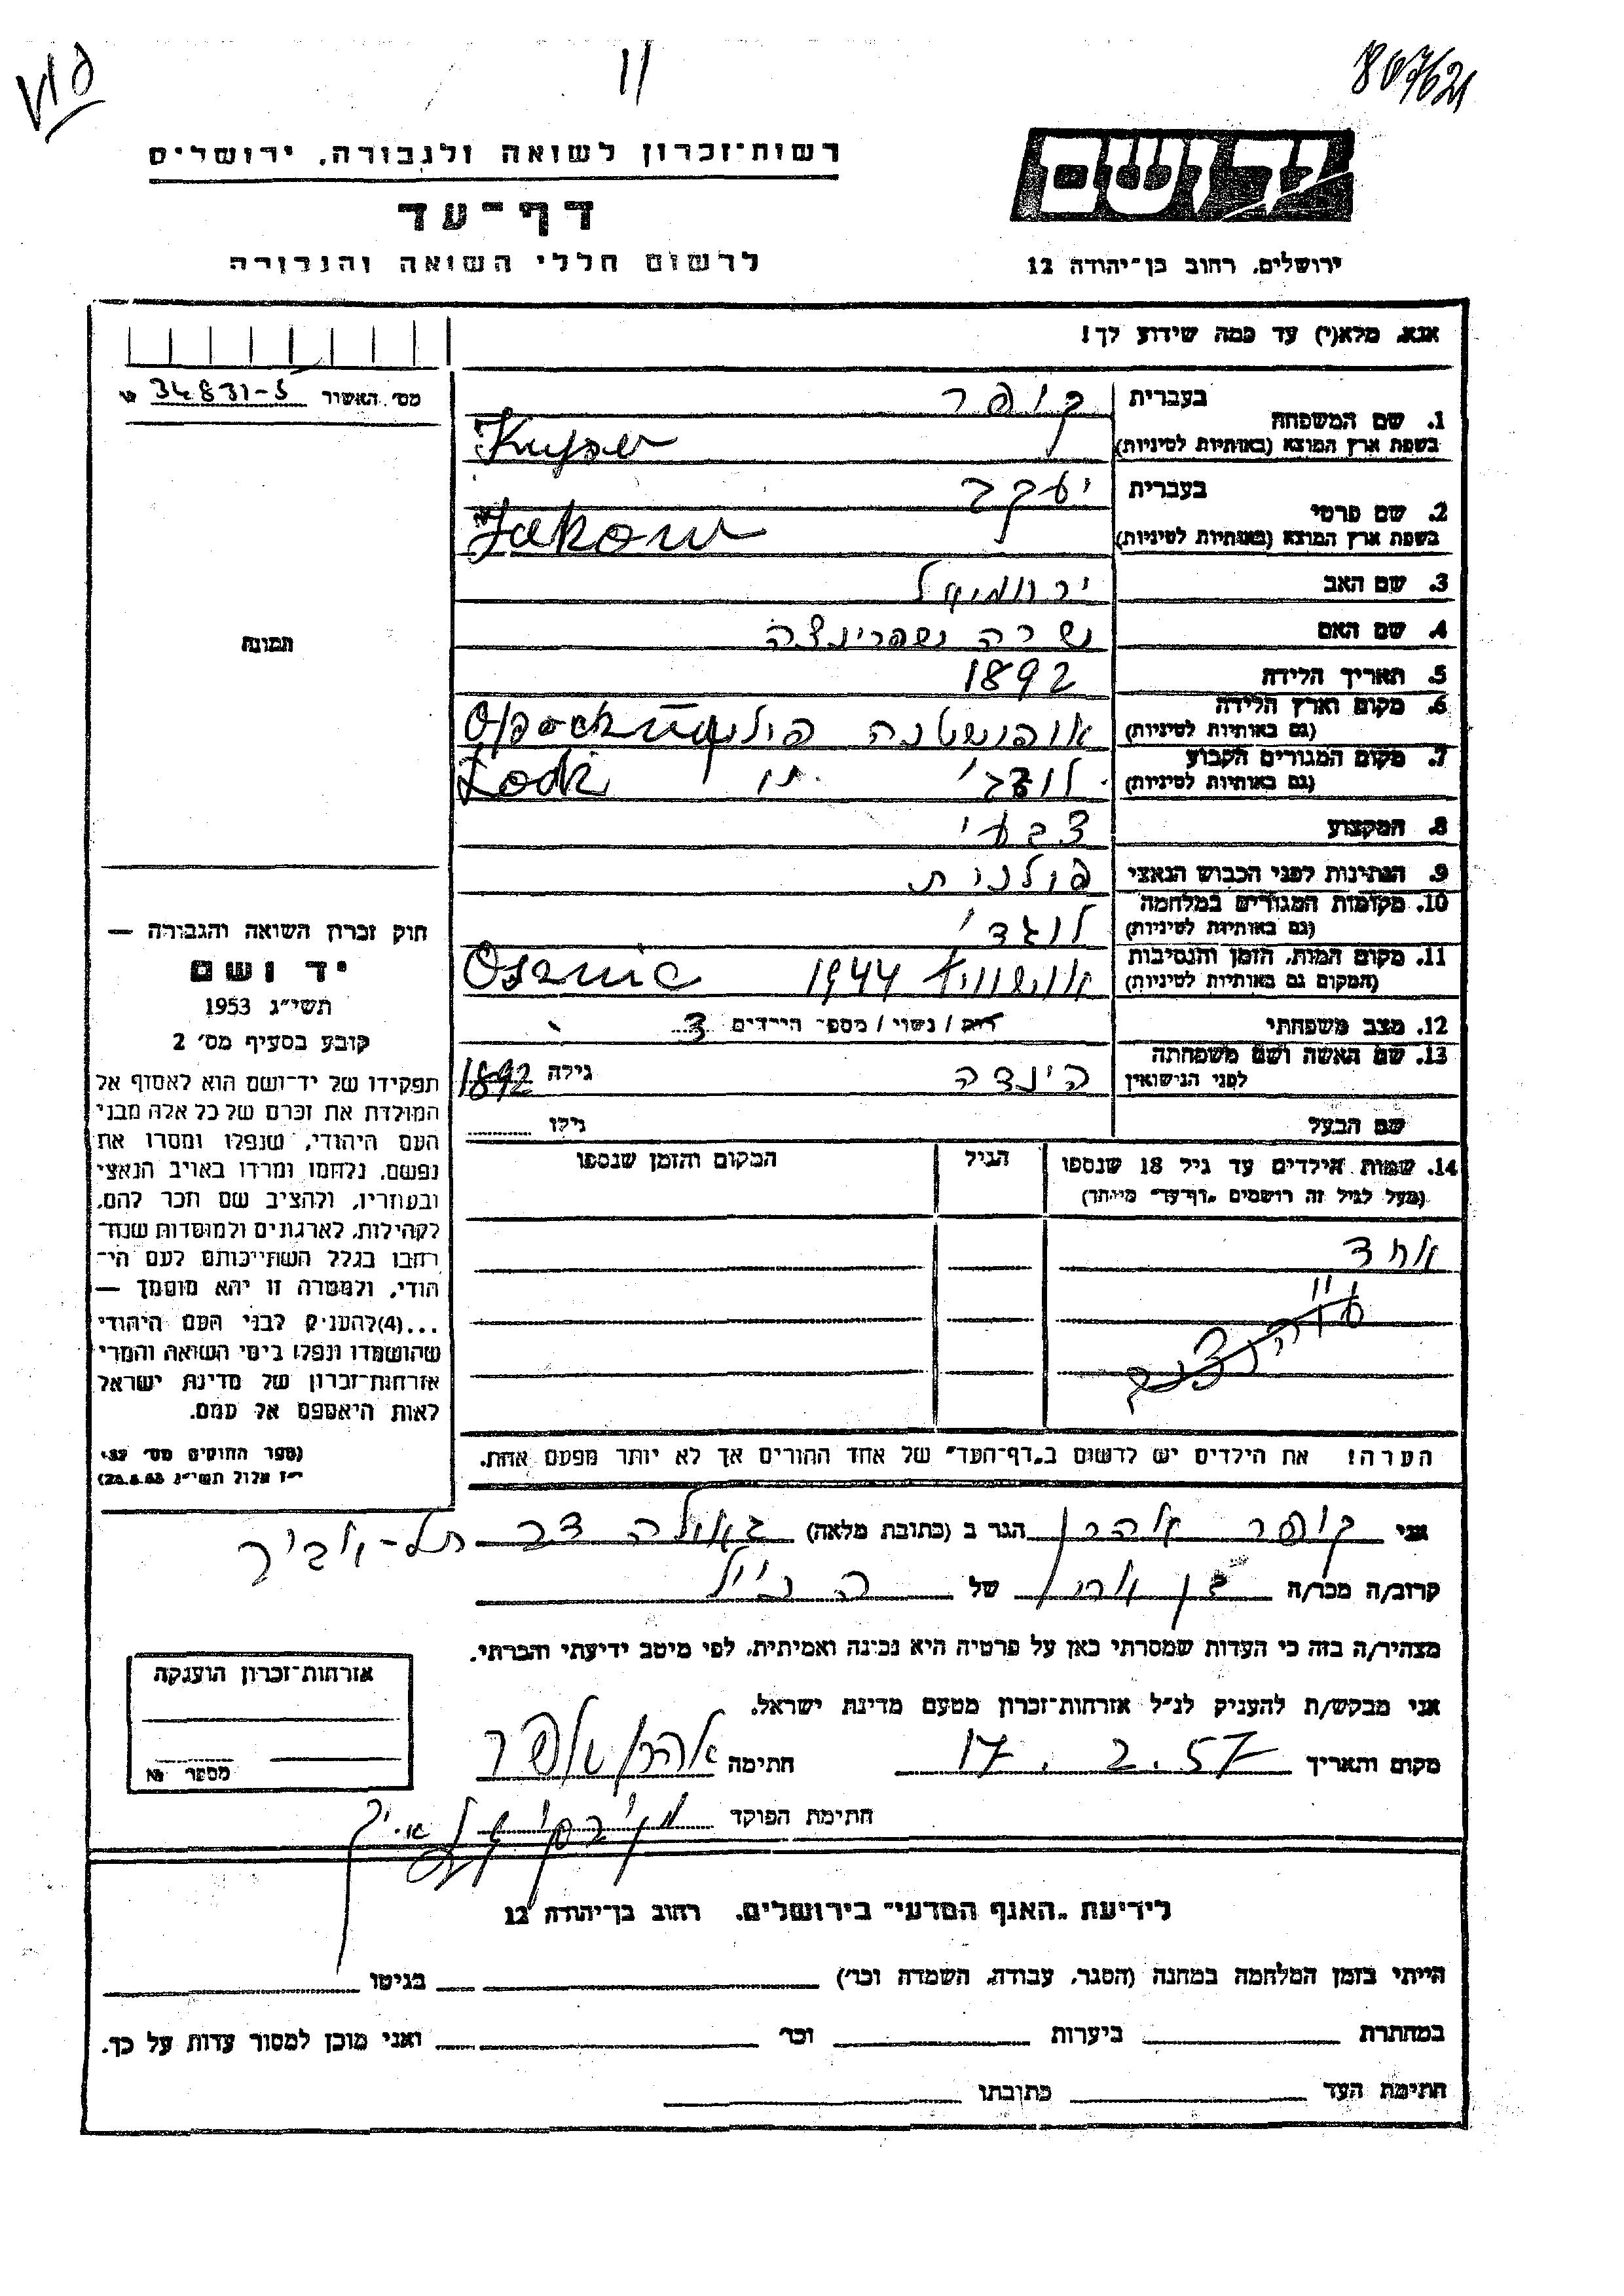 807621
11
יד ושם
ירושלים, רחוב בן־יהודה 12
רשות־זכרון לשואה ולגבורה, ירושלים
דף־עד
לרשום חללי השואה והגבורה
אנא, מלא(י) עד כמה שידוע לך!
מס׳ האשור 34831-5 №
1. שם המשפחה
בעברית קופר
בשפת ארץ המוצא (באותיות לטיניות) Kuper
2. שם פרטי
בעברית יעקב
בשפת ארץ המוצא (באותיות לטיניות) Jakow
3. שם האב ירחמיאל
4. שם האם שרה שפרינצה
5. תאריך הלידה 1892
6. מקום וארץ הלידה
(גם באותיות לטיניות) פולין
7. מקום המגורים הקבוע
(גם באותיות לטיניות) לודג׳ Lodz
8. המקצוע צבעי
9. הנתינות לפני הכבוש הנאצי פולנית
10. מקומות המגורים במלחמה
(גם באותיות לטיניות) לודג׳
11. מקום המות, הזמן והנסיבות
(המקום גם באותיות לטיניות) אושוויץ 1944
12. מצב משפחתי רוק / נשוי / מספר הילדים 3
13. שם האשה ושם משפחתה
לפני הנישואין הינדה גילה 1892
שם הבעל גילו
14. שמות הילדים עד גיל 18 שנספו
(מעל לגיל זה רושמים „דף־עד״ מיוחד)
הגיל
המקום והזמן שנספו
אחד
הערה! את הילדים יש לרשום ב„דף־העד״ של אחד ההורים אך לא יותר מפעם אחת.
תמונה
חוק זכרון השואה והגבורה —
יד ושם
תשי״ג 1953
קובע בסעיף מס׳ 2
תפקידו של יד־ושם הוא לאסוף אל
המולדת את זכרם של כל אלה מבני
העם היהודי, שנפלו ומסרו את
נפשם, נלחמו ומרדו באויב הנאצי
ובעוזריו, ולהציב שם וזכר להם,
לקהילות, לארגונים ולמוסדות שנח־
רבו בגלל השתייכותם לעם הי־
הודי, ולמטרה זו יהא מוסמך —
...(4) להעניק לבני העם היהודי
שהושמדו ונפלו בימי השואה והמרי
אזרחות־זכרון של מדינת ישראל
לאות היאספם אל עמם.
(ספר החוקים מס׳ 132
י״ז אלול תשי״ג 28.8.53)
אני קופר אהרן הגר ב (כתובת מלאה) גאולה תל-אביב
קרוב/ה מכר/ה בן של הנ״ל
מצהיר/ה בזה כי העדות שמסרתי כאן על פרטיה היא נכונה ואמיתית, לפי מיטב ידיעתי והכרתי.
אני מבקש/ת להעניק לנ״ל אזרחות־זכרון מטעם מדינת ישראל.
מקום ותאריך 17.2.57 חתימה אהרן קופר
חתימת הפוקד
אזרחות־זכרון הוענקה
מספר №
לידיעת „האגף המדעי״ בירושלים, רחוב בן־יהודה 12
הייתי בזמן המלחמה במחנה (הסגר, עבודה, השמדה וכו׳) בגיטו
במחתרת ביערות וכו׳ ואני מוכן למסור עדות על כך.
חתימת העד כתובתו